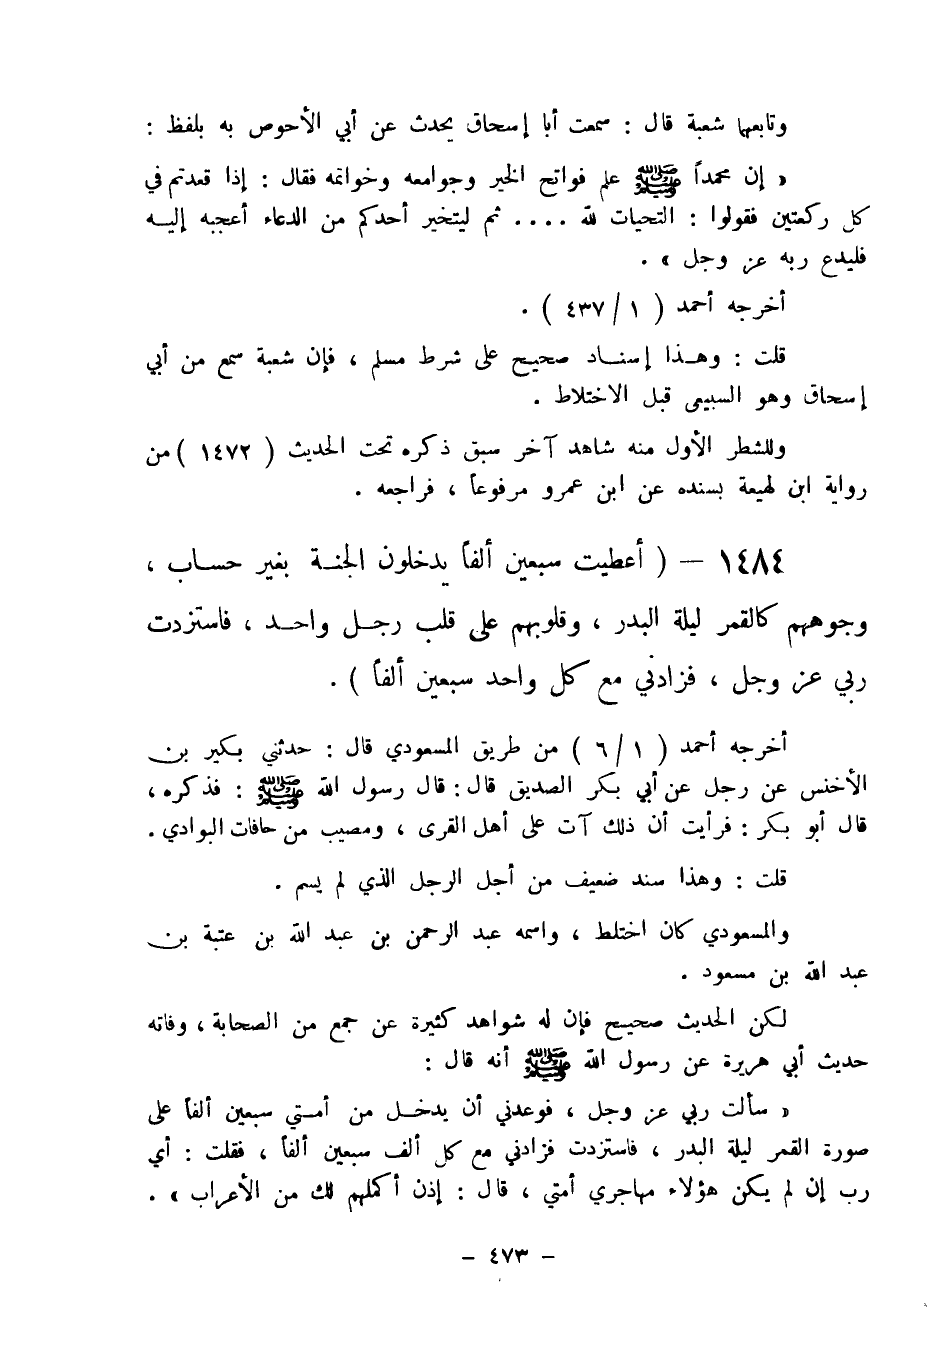 وتابعها شعبة قال : سمعت أبا إسحاق يحدث عن أبي الأحوص به بلفظ :
« إن محمداً ﷺ علم فواتح الخير وجوامعه وخواتمه فقال : إذا قعدتم في
كل ركعتين فقولوا : التحيات لله .... ثم ليتخير أحدكم من الدعاء أعجبه إليه
فليدع ربه عز وجل » .
أخرجه أحمد ( ١ / ٤٣٧ ) .
قلت : وهذا إسناد صحيح على شرط مسلم ، فإن شعبة سمع من أبي
إسحاق وهو السبيعي قبل الاختلاط .
وللشطر الأول منه شاهد آخر سبق ذكره تحت الحديث ( ١٤٧٢ ) من
رواية ابن لهيعة بسنده عن ابن عمرو مرفوعاً ، فراجعه .
١٤٨٤ – ( أعطيت سبعين ألفاً يدخلون الجنة بغير حساب ،
وجوههم كالقمر ليلة البدر ، وقلوبهم على قلب رجل واحد ، فاستزدت
ربي عز وجل ، فزادني مع كل واحد سبعين ألفاً ) .
أخرجه أحمد ( ١ / ٦ ) من طريق المسعودي قال : حدثني بكير بن
الأخنس عن رجل عن أبي بكر الصديق قال : قال رسول الله ﷺ : فذكره ،
قال أبو بكر : فرأيت أن ذلك آت على أهل القرى ، ومصيب من حافات البوادي .
قلت : وهذا سند ضعيف من أجل الرجل الذي لم يسم .
والمسعودي كان اختلط ، واسمه عبد الرحمن بن عبد الله بن عتبة بن
عبد الله بن مسعود .
لكن الحديث صحيح فإن له شواهد كثيرة عن جمع من الصحابة ، وفاته
حديث أبي هريرة عن رسول الله ﷺ أنه قال :
« سألت ربي عز وجل ، فوعدني أن يدخل من أمتي سبعين ألفاً على
صورة القمر ليلة البدر ، فاستزدت فزادني مع كل ألف سبعين ألفاً ، فقلت : أي
رب إن لم يكن هؤلاء مهاجري أمتي ، قال : إذن أكملهم لك من الأعراب » .
– ٤٧٣ –